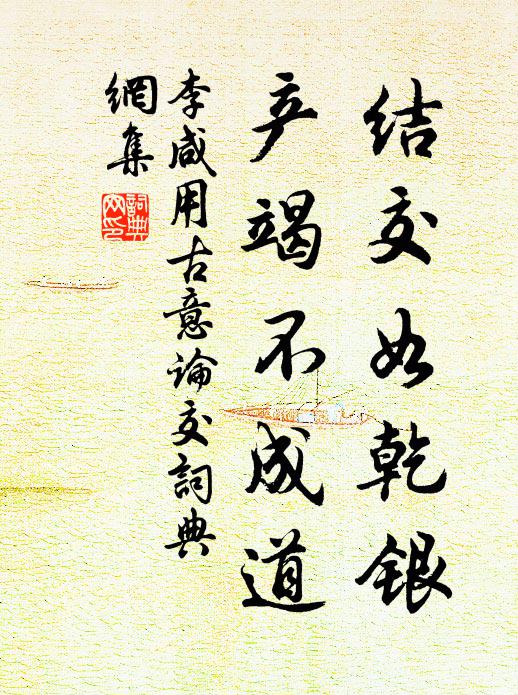 结交如乾银
产竭不成道
李咸用古意論交詞典
網集
詞典
网印